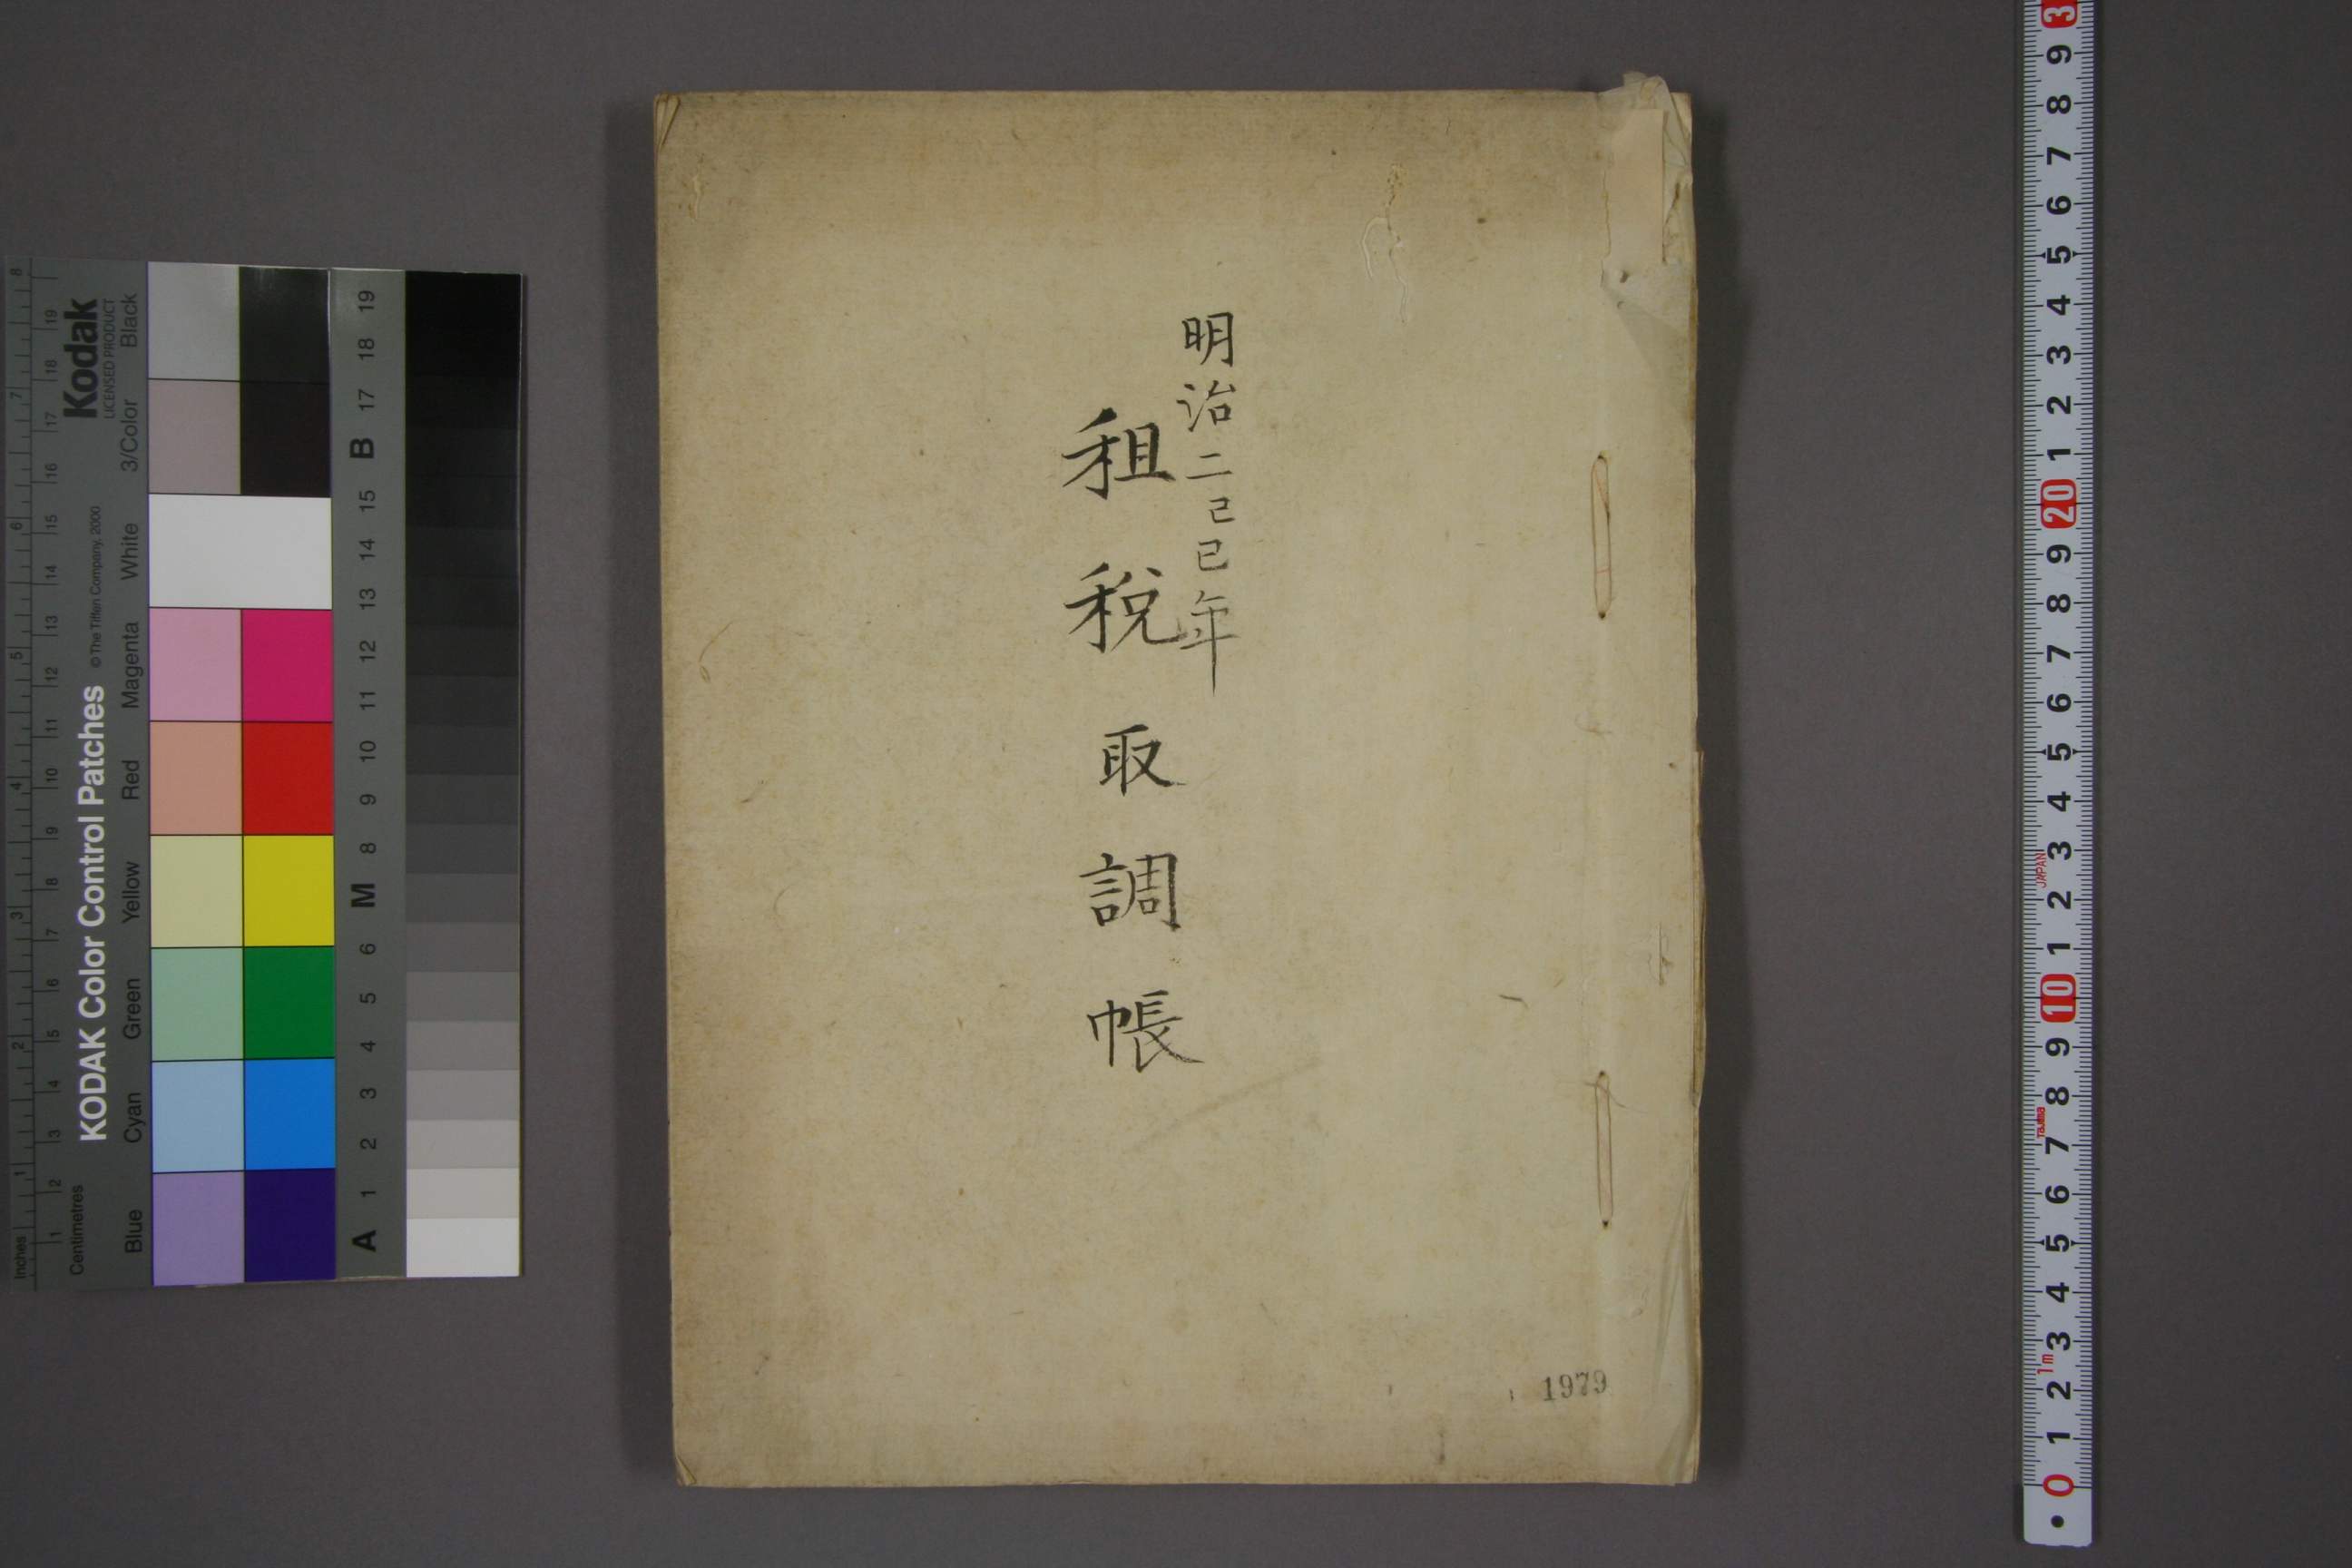 明治二己巳年
租税取調帳
1979
Kodak
LICENSED PRODUCT
KODAK Color Control Patches
© The Tiffen Company, 2000
Inches
Centimetres
Blue
Cyan
Green
Yellow
Red
Magenta
White
3/Color
Black
A 1 2 3 4 5 6 M 8 9 10 11 12 13 14 15 B 17 18 19
JAPAN
Tajima
1m
0 1 2 3 4 5 6 7 8 9 10 1 2 3 4 5 6 7 8 9 20 1 2 3 4 5 6 7 8 9 3